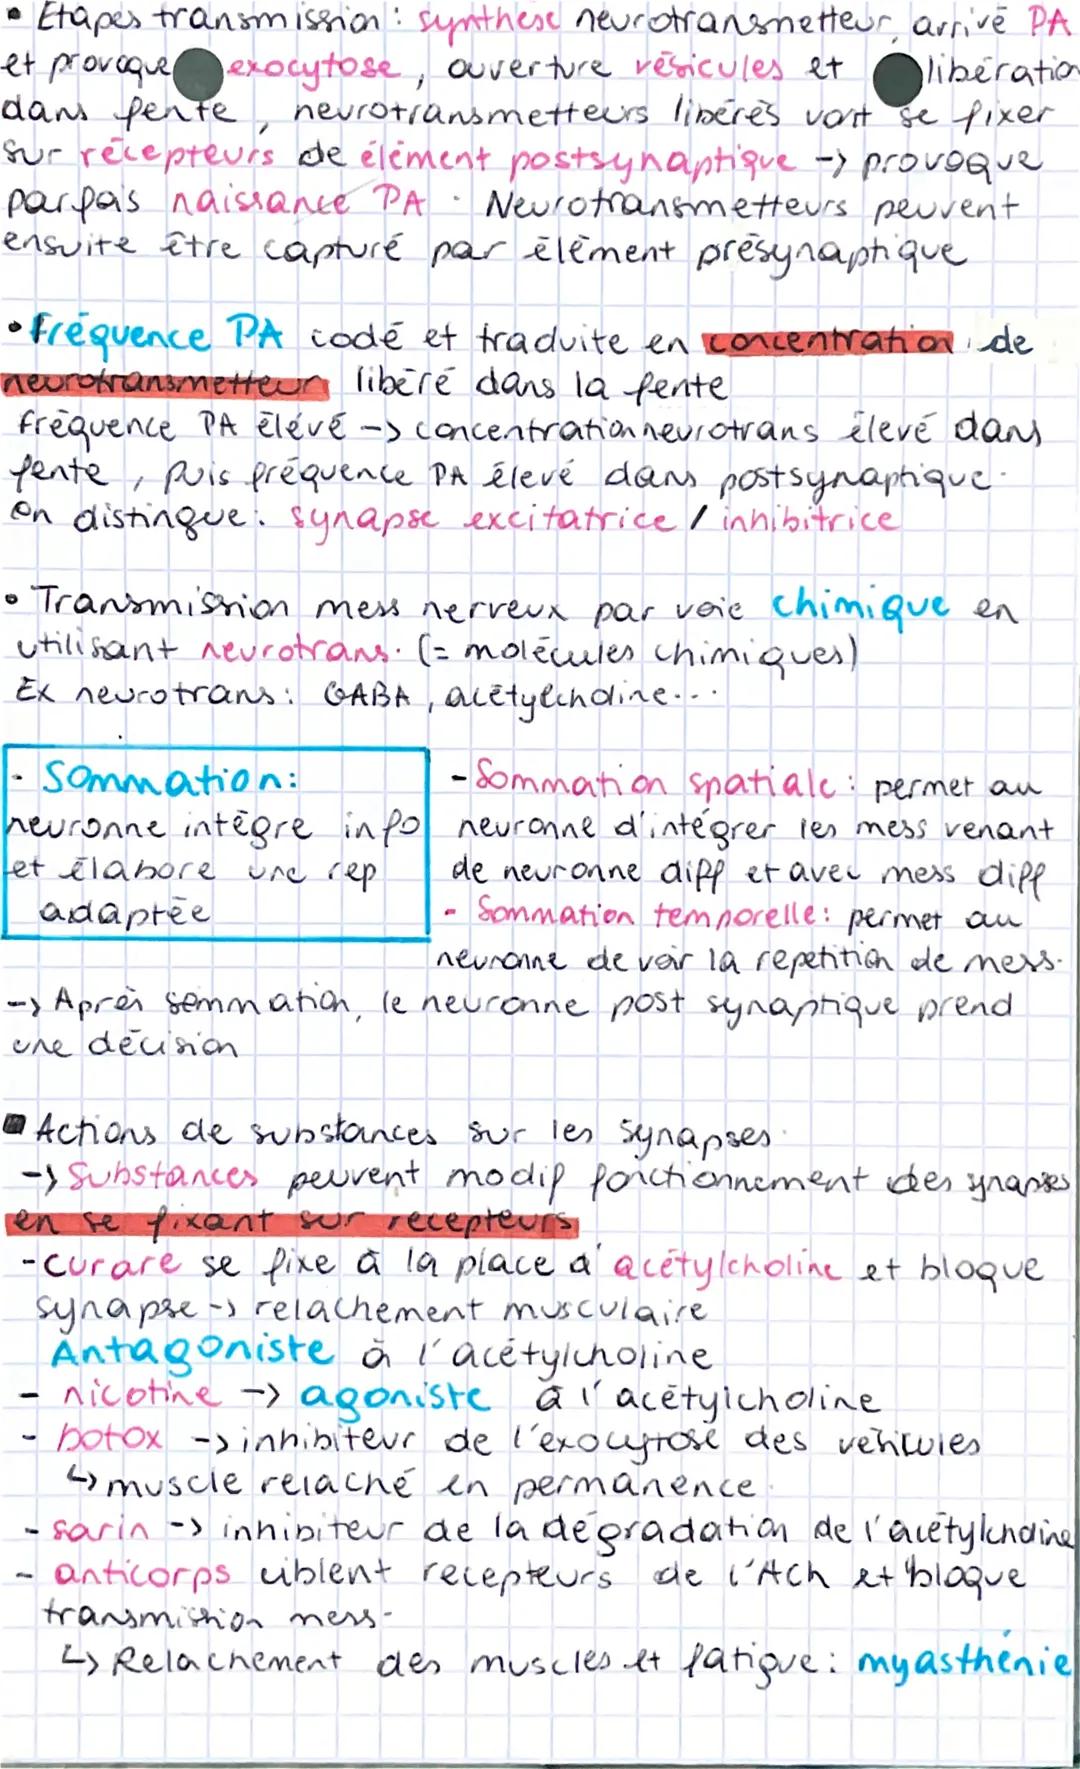 • Etapes transmission : synthese neurotransmetteur, arrivé PA
et provoque exocytose, ouverture vésicules et libération
dans fente, neurotransmetteurs libérés vont se fixer
sur récepteurs de élément postsynaptique -> provoque
parfois naissance PA. Neurotransmetteurs peuvent
ensuite être capturé par élément présynaptique
• Fréquence PA codé et traduite en concentration de
neurotransmetteur libéré dans la fente
fréquence PA élévé -> concentration neurotrans élevé dans
fente, puis fréquence PA élevé dans postsynaptique.
on distingue : synapse excitatrice / inhibitrice
• Transmission mess nerveux par voie chimique en
utilisant neurotrans. (= molécules chimiques)
Ex neurotrans : GABA, acétylcholine...
- Sommation :
neuronne intègre info
et élabore une rep
adaptée
- Sommation spatiale : permet au
neuronne d'intégrer les mess venant
de neuronne diff et avec mess diff
- Sommation temporelle : permet au
neuronne de voir la repetition de mess.
-> Après sommation, le neuronne post synaptique prend
une décision
■ Actions de substances sur les synapses.
-> Substances peuvent modif fonctionnement des synapses
en se fixant sur recepteurs
- curare se fixe à la place d'acétylcholine et bloque
synapse -> relachement musculaire
Antagoniste à l'acétylcholine
- nicotine -> agoniste à l'acétylcholine
- botox -> inhibiteur de l'exocytose des vésicules
↳ muscle relaché en permanence.
- sarin -> inhibiteur de la dégradation de l'acétylcholine
- anticorps ciblent recepteurs de l'Ach et bloque
transmission mess-
↳ Relachement des muscles et fatigue : myasthénie